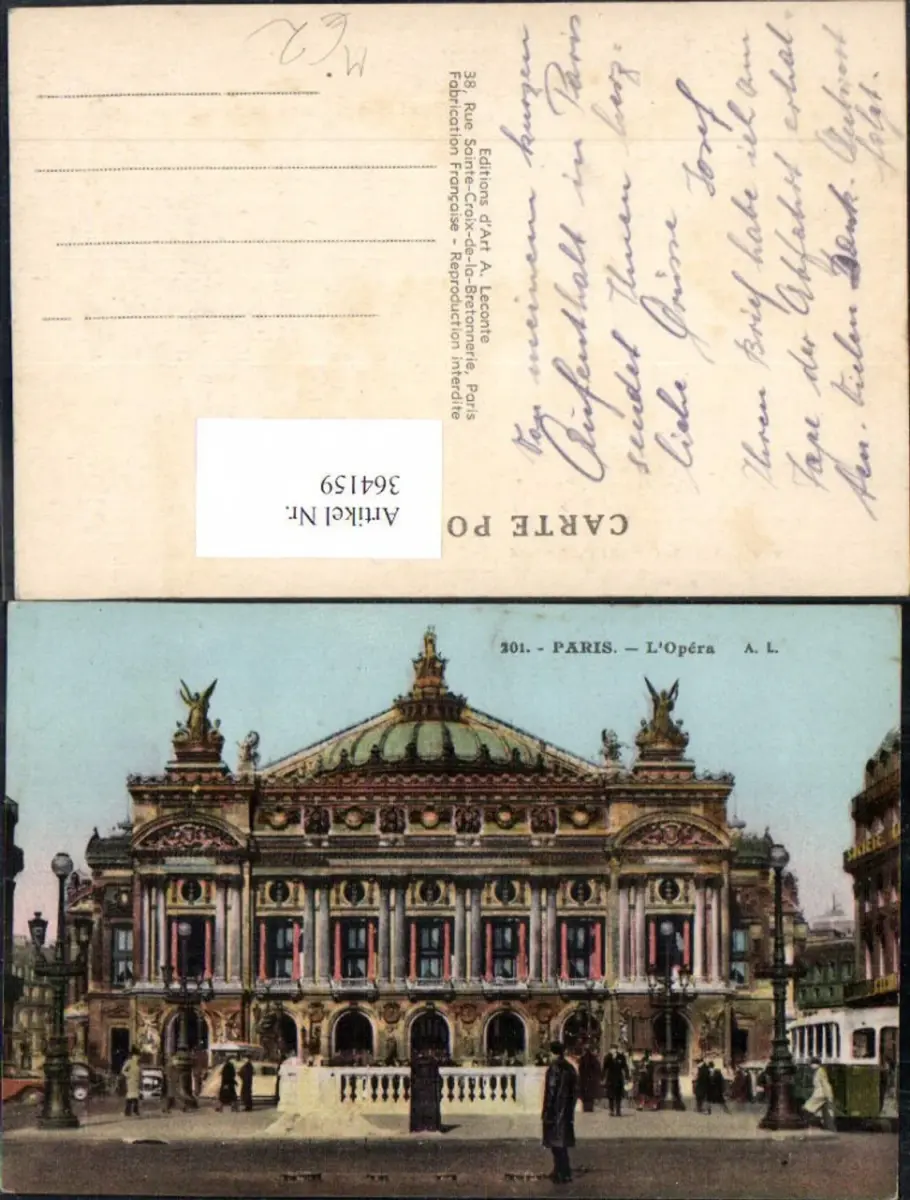 M
62
Editions d'Art A. Leconte
38, Rue Sainte-Croix-de-la-Bretonnerie, Paris
Fabrication Française - Reproduction interdite
CARTE PO
Artikel Nr.
364159
Von meinem kurzen
Aufenthalt in Paris
sendet Ihnen herz-
liche Grüsse
Josef
Ihren Brief habe ich am
Tage der Abfahrt erhal-
ten. Vielen Dank. Antwort
folgt.
201. - PARIS. — L'Opéra A. L.
SOCIÉTÉ